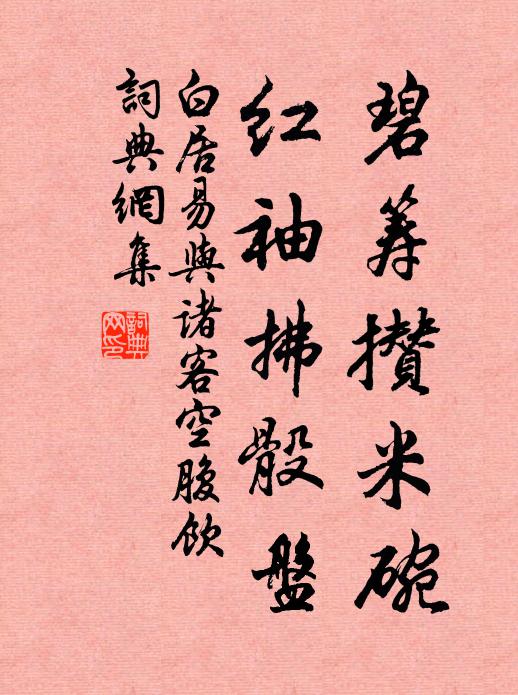 碧筹攢米碗
红袖拂骰盤
白居易與諸客空腹飲
詞典網集
詞典網印